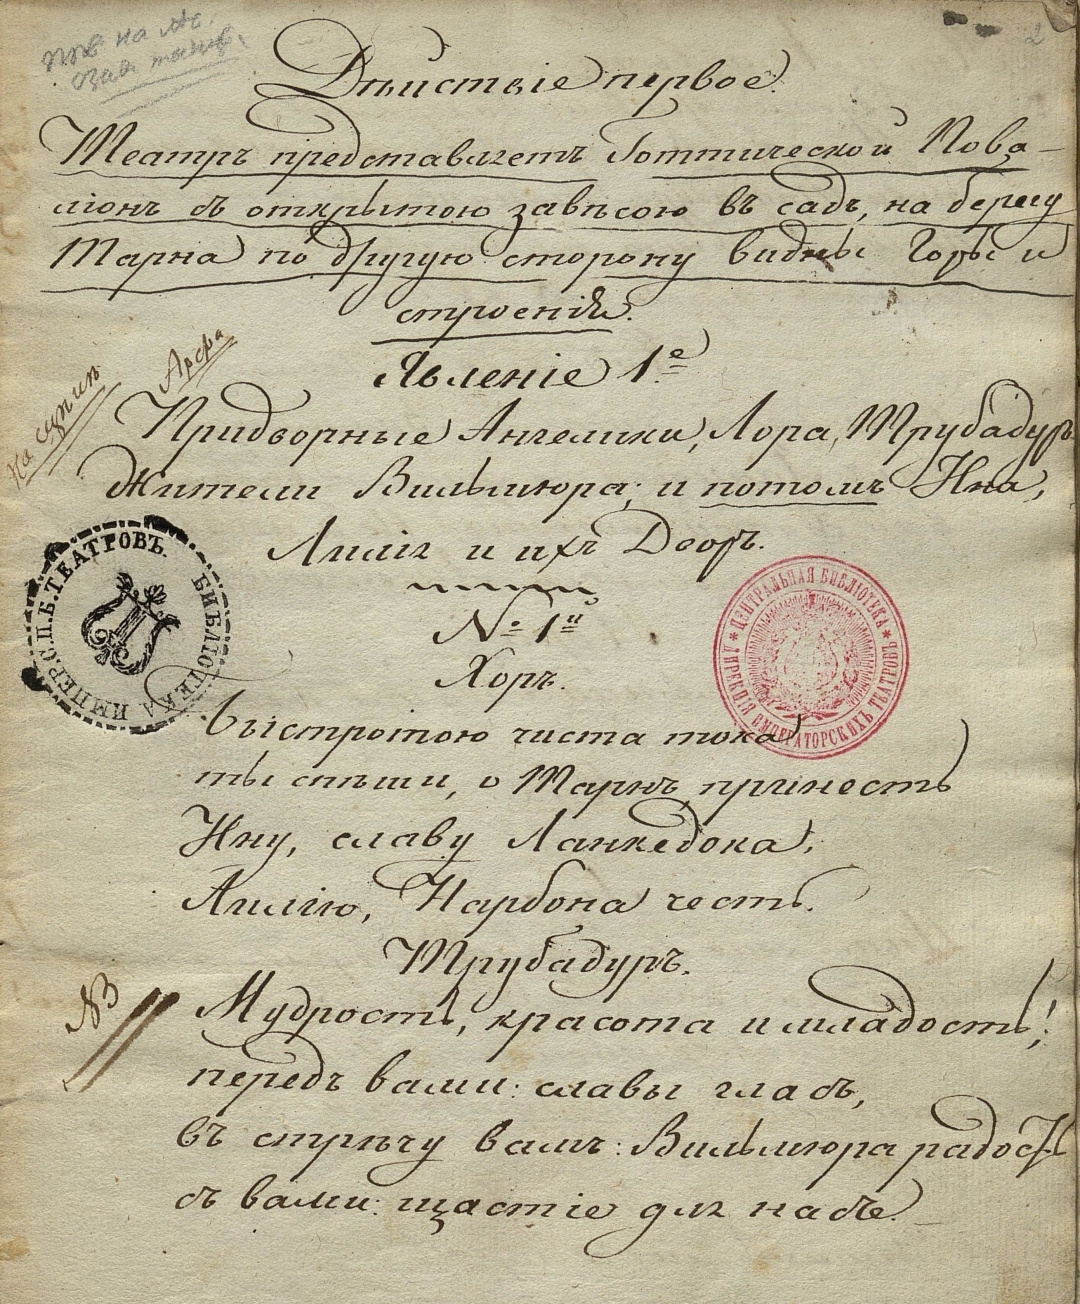 2
Дѣистьіе первое.
Театръ представляетъ Готтической Пова-
ліонъ съ открытою завѣсою въ садъ, на берегу
Тарна по другую сторону видны Горы и
строенія.
Явленіе 1.е
На сценѣ Арфа
Придворные Ангелики, Лора, Трубадуръ
Жители Вильмюра; и потомъ Ина,
Лилія и ихъ Дворъ.
БИБЛІОТЕКА ИМПЕР. С.П.Б. ТЕАТРОВЪ.
№ 1й
ЦЕНТРАЛЬНАЯ БИБЛІОТЕКА * ДИРЕКЦІЯ ИМПЕРАТОРСКИХЪ ТЕАТРОВЪ *
Хоръ.
Быстротою чиста тока
ты спѣши, о Тарнъ, принесть
Ину, славу Лангедока,
Лилію, Нарбона честь.
Трубадуръ.
NB
Мудрость, красота и младость!
передъ вами: славы гласъ,
въ стрѣчу вамъ: Вильмюра радость
съ вами: щастіе для насъ.